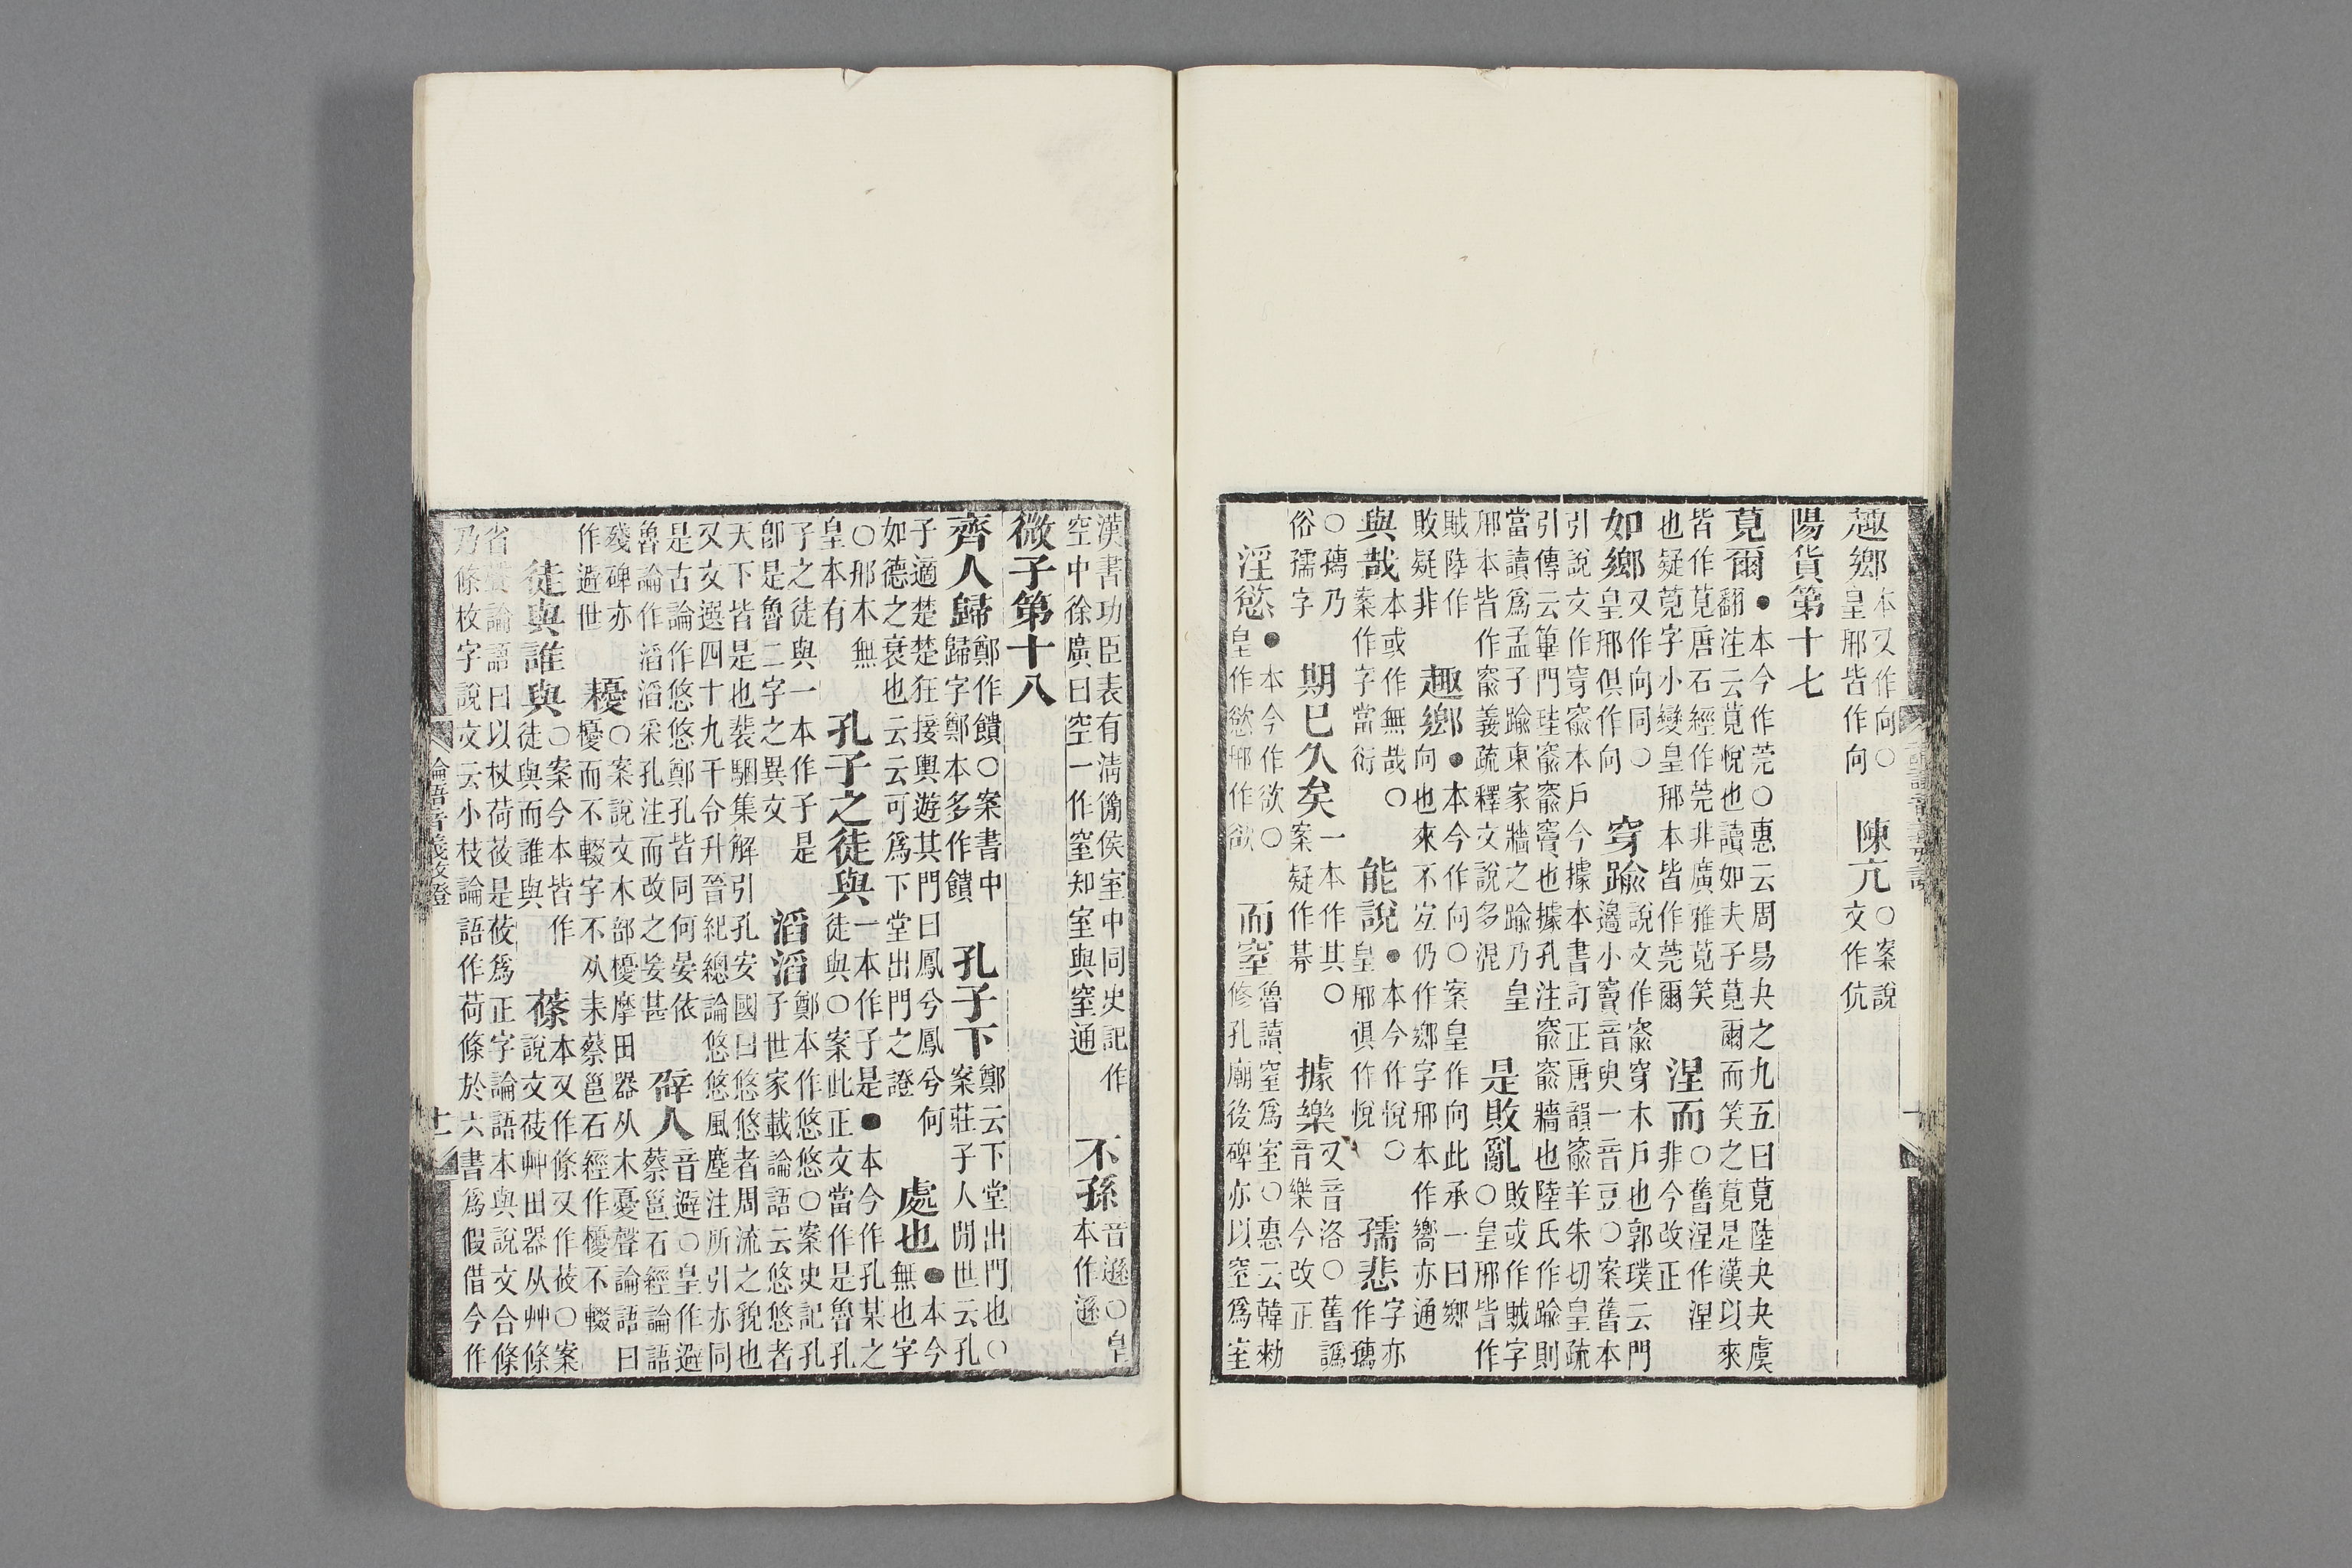 趣鄉本又作向○皇邢皆作向 陳亢○案說文作伉
陽貨第十七
莧爾●本今作莞○惠云周易夬之九五曰莧陸夬夬虞翻注云莧悅也讀如夫子莧爾而笑之莧是漢以來
皆作莧唐石經作莞非廣雅莧笑也疑莧字小變皇邢本皆作莞爾 涅而○舊涅作湼非今改正
如鄉又作向同○皇邢俱作向 穿踰說文作窬穿木戶也郭璞云門邉小竇音臾一音豆○案舊本
引說文作穿窬本戶今據本書訂正唐韻窬羊朱切皇疏引傳云篳門珪窬窬竇也據孔注窬窬牆也陸氏作踰則
當讀爲孟子踰東家牆之踰乃皇邢本皆作窬義疏釋文說多混 是敗亂敗或作賊字○皇邢皆作
賊陸作敗疑非 趣鄉●本今作向○案皇作向此承一曰鄉向也來不宐仍作鄉字邢本作嚮亦通
與哉本或作無哉○案作字當衍 能說●本今作悅○皇邢俱作悅 孺悲字亦作獳
○獳乃俗孺字 期已久矣一本作其○案疑作朞 據樂又音洛○舊譌音樂今改正
淫慾●本今作欲○皇作慾邢作欲 而窒魯讀窒爲室○惠云韓勑修孔廟後碑亦以窒爲室
漢書功臣表有清簡侯室中同史記作空中徐廣曰空一作窒知室與窒通 不孫音遜○皇本作遜
微子第十八
齊人歸鄭作饋○案書中歸字鄭本多作饋 孔子下鄭云下堂出門也○案莊子人閒世云孔
子適楚楚狂接輿遊其門曰鳳兮鳳兮何如德之衰也云云可爲下堂出門之證 處也●本今無也字
○邢本無皇本有 孔子之徒與一本作子是●本今作孔某之徒與○案此正文當作是魯孔
子之徒與一本作子是卽是魯二字之異文 滔滔鄭本作悠悠○案史記孔子世家載論語云悠悠者
天下皆是也裴駰集解引孔安國曰悠悠者周流之貌也又文選四十九干令升晉紀總論悠悠風塵注所引亦同
是古論作悠悠鄭孔皆同何晏依魯論作滔滔采孔注而改之妄甚 辟人音避○皇作避蔡邕石經論語
殘碑亦作避世 耰○案說文木部櫌摩田器从木憂聲論語曰櫌而不輟字不从耒蔡邕石經作櫌不輟
徒與誰與○案今本皆作徒與而誰與 蓧本又作條又作莜○案說文莜艸田器从艸條
省聲論語曰以杖荷莜是莜爲正字論語本與說文合條乃條枚字說文云小枝論語作荷條於六書爲假借今作
論語音義攷證
十一